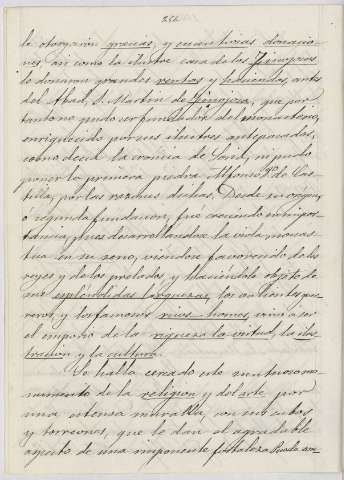 252
le otorgaron gracias, y cuantiosas donacio-
nes así como la ilustre casa de los Finojosas
le donaron grandes rentas y haciendas, antes
del Abad, S. Martin de Finojosa, que por
tanto no pudo ser fundador del monasterio,
enriquecido por sus ilustres antepasados,
como decia la cronica de Soria, ni pudo
poner la primera piedra Alfonso 8º de Cas-
tilla, por las razones dichas. Desde su origen,
ó segunda fundacion, fue creciendo en impor-
tancia, pues desarrollandose la vida monas-
tica en su seno, viendose favorecido de los
reyes y de los prelados y haciendole objeto de
sus esplendidas larguezas, los valientes gue-
rreros, y los famosos ricos-homes, vino á ser
el emporio de la riqueza la virtud, la ilus-
tracion y la cultura.
Se halla cercado este misterioso mo-
numento de la religion y del arte por
una estensa muralla, con sus cubos
y torreones, que le dan el agradable
aspecto de una imponente fortaleza